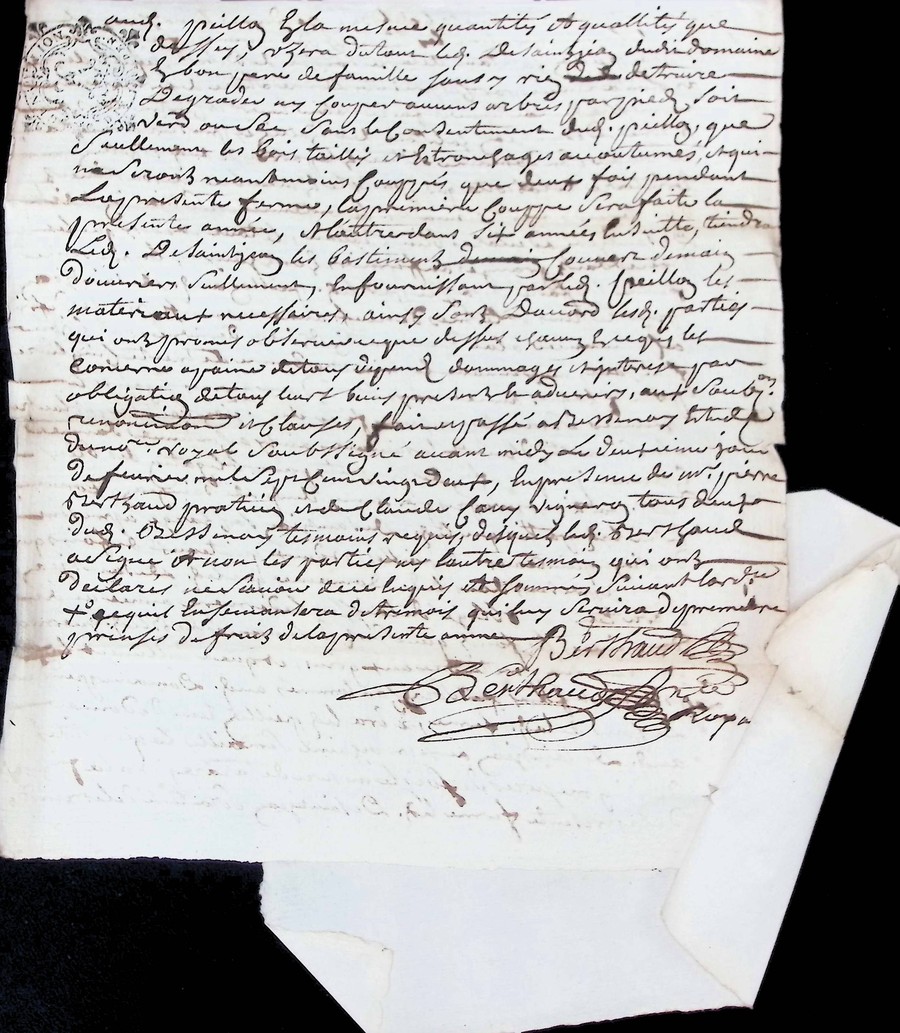 aud. peillon En la mesme quantités et quallités que
dessus, uzera du tout led. Desaintjean dudit domaine
En bon pere de famille sans y rien detruire
Degrader ny couper aucuns arbres par pied soit
verd ou sec sans le Consentement dud. peillon, que
seullement les bois taillis et Estronchages accoutumés, et qui
ne seront neantmoins Couppés que deux fois pendant
La presente ferme, la premiere Couppe sera faite la
presente année, et l'autre dans six années Ensuitte, tiendra
Led. Desaintjean les bastiments Couvert de main
Douvriers seullement, En fournissant par led. peillon les
materiaux necessaires, ainsy sont D'accord lesd. parties
qui ont promis observer ce que dessus chacun En ce qui les
concerne a peine de tous depend dommages et interest par
obligation de tous leurs biens presents et advenirs, aux
renonciations et Clauses, fait et passé a Bessenay Estude
du no.re royal soussigné avant midy Le deuxieme jour
de fevrier mil sept Cent vingt deux, En presence de M.r pierre
Berthaud praticien et de Claude vigneron tous deux
dud. Bessenay tesmoins requis, desquels led. Berthaud
a signé et non les parties ny l'autre tesmoin qui ont
declarés ne scavoir de ce Enquis et sommés suivant lord.ce
ce qu'il Ensemancera de tremois qui luy servira de premiere
prinses de fruit de la presente année
Berthaud
Berthaud no.re
Roya